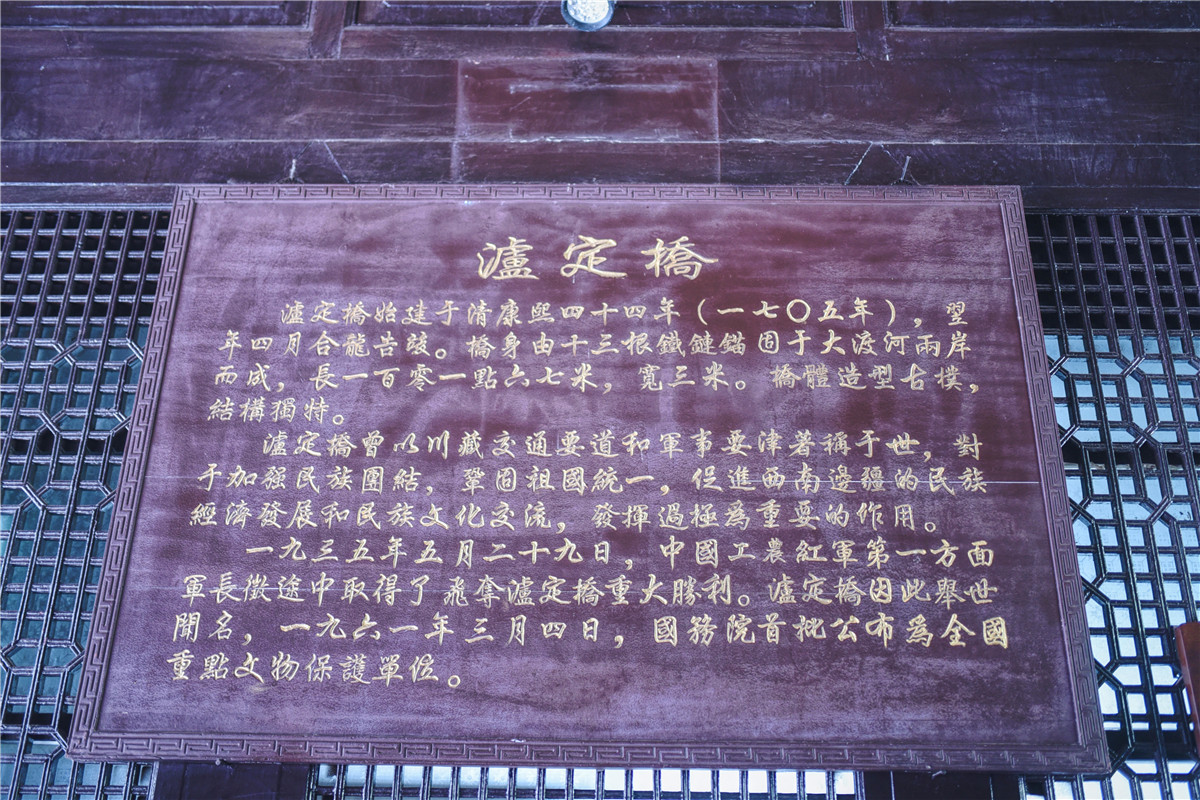 瀘定橋
瀘定橋始建于清康熙四十四年(一七〇五年),翌
年四月合龍告竣。橋身由十三根鐵鏈錨固于大渡河兩岸
而成,長一百零一點六七米,寬三米。橋體造型古樸,
結構獨特。
瀘定橋曾以川藏交通要道和軍事要津著稱于世,對
于加强民族團結,鞏固祖國統一,促進西南邊疆的民族
經濟發展和民族文化交流,發揮過極爲重要的作用。
一九三五年五月二十九日,中國工農紅軍第一方面
軍長徵途中取得了飛奪瀘定橋重大勝利。瀘定橋因此舉世
聞名,一九六一年三月四日,國務院首批公布爲全國
重點文物保護單位。